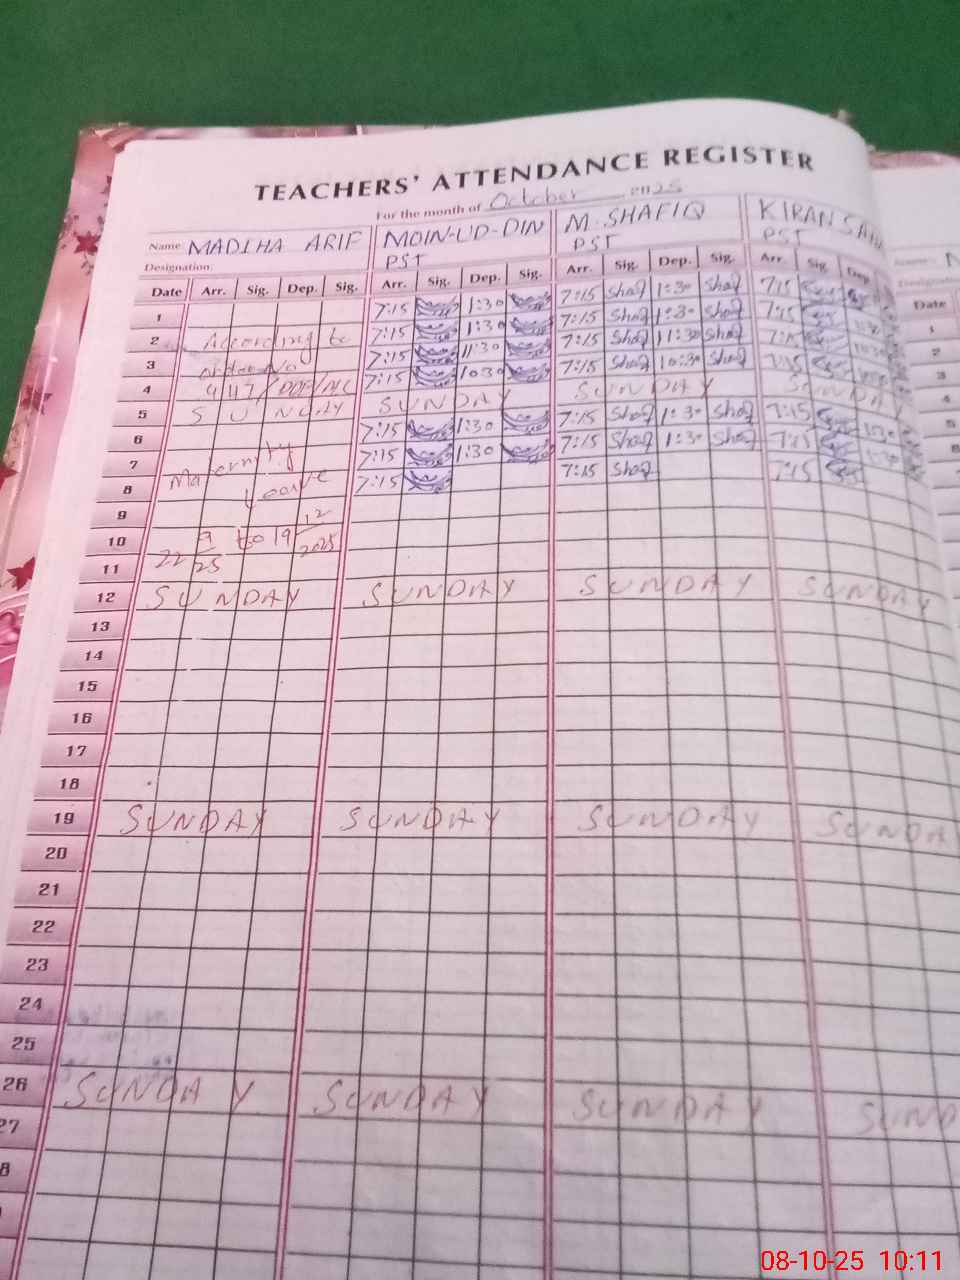 TEACHERS' ATTENDANCE REGISTER
For the month of October 2025
Name MADIHA ARIF MOIN-UD-DIN M.SHAFIQ KIRAN
Designation. PST PST PST
Date Arr. Sig. Dep. Sig. Arr. Sig. Dep. Sig. Arr. Sig. Dep. Sig. Arr. Sig. Dep. Date
1 7:15 1:30 7:15 Shafq 1:30 Shafq 7:15 1
2 According to 7:15 1:30 7:15 Shafq 1:30 Shafq 7:15 2
3 order No 7:15 11:30 7:15 Shafq 11:30 Shafq 7:15 3
4 7:15 10:30 7:15 Shafq 10:30 Shafq 7:15 4
5 SUNDAY SUNDAY SUNDAY SUNDAY 5
6 7:15 1:30 7:15 Shafq 1:30 Shafq 7:15 6
7 Maternity 7:15 1:30 7:15 Shafq 1:30 Shafq 7:15
8 Leave 7:15 7:15 Shafq 7:15
9
10 22 9/25 to 19 12/2025
11
12 SUNDAY SUNDAY SUNDAY SUNDAY
13
14
15
16
17
18
19 SUNDAY SUNDAY SUNDAY SUNDA
20
21
22
23
24
25
26 SUNDAY SUNDAY SUNDAY SUND
27
8
08-10-25 10:11